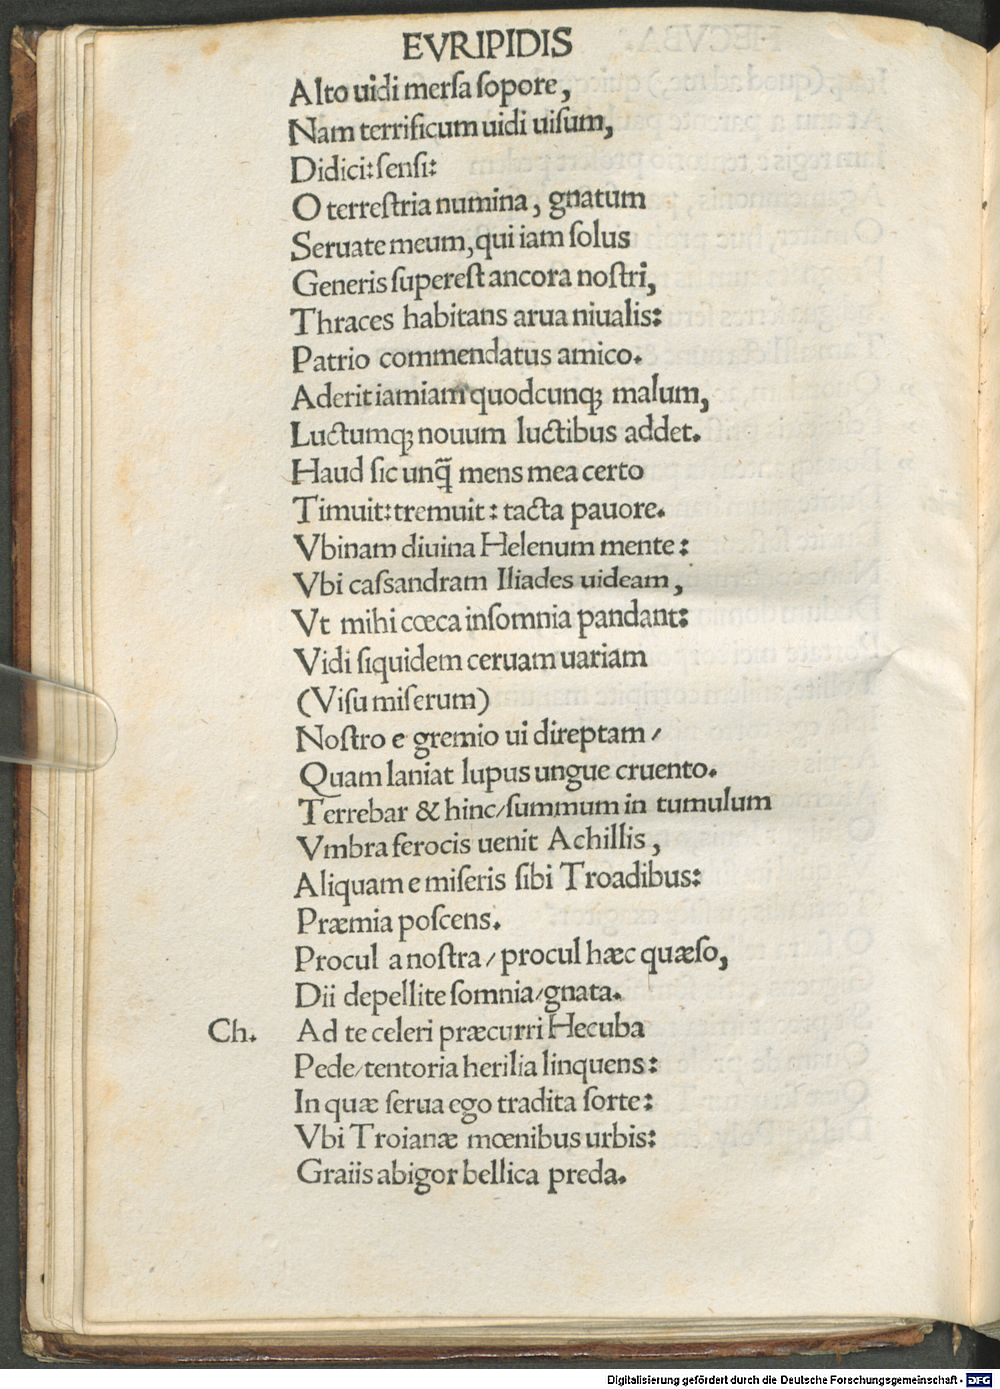 EVRIPIDIS
Alto uidi mersa sopore,
Nam terrificum uidi uisum,
Didici: sensi:
O terrestria numina, gnatum
Seruate meum, qui iam solus
Generis superest ancora nostri,
Thraces habitans arua niualis:
Patrio commendatus amico.
Aderit iamiam quodcunq; malum,
Luctumq; nouum luctibus addet.
Haud sic unq̃ mens mea certo
Timuit: tremuit: tacta pauore.
Vbinam diuina Helenum mente:
Vbi cassandram Iliades uideam,
Vt mihi cœca insomnia pandant:
Vidi siquidem ceruam uariam
(Visu miserum)
Nostro e gremio ui direptam/
Quam laniat lupus ungue cruento.
Terrebar & hinc/summum in tumulum
Vmbra ferocis uenit Achillis,
Aliquam e miseris sibi Troadibus:
Præmia poscens.
Procul a nostra/ procul hæc quæso,
Dii depellite somnia/gnata.
Ch. Ad te celeri præcurri Hecuba
Pede/tentoria herilia linquens:
In quæ serua ego tradita sorte:
Vbi Troianæ mœnibus urbis:
Graiis abigor bellica preda.
Digitalisierung gefördert durch die Deutsche Forschungsgemeinschaft - DFG